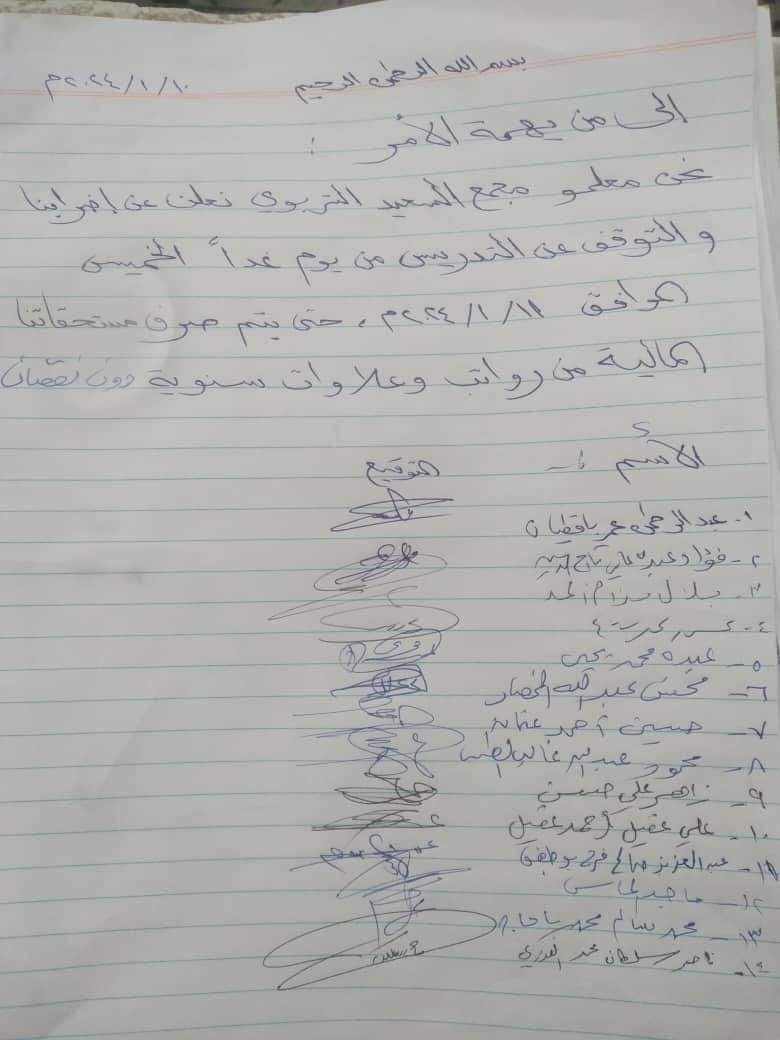 بسم الله الرحمن الرحيم ٢٠٢٤/١/١٠م
الى من يهمة الأمر :
نحن معلمو مجمع السعيد التربوي نعلن عن إضرابنا
والتوقف عن التدريس من يوم غداً الخميس
الموافق ٢٠٢٤/١/١١م، حتى يتم صرف مستحقاتنا
المالية من رواتب وعلاوات سنوية دون نقصان
الأسم :- التوقيع
١- عبدالرحمن عمر باقطيان
٢- فؤاد عبده علي
٣- بلال
٤-
٥- عبده محمد يحيى
٦- محسن عبدالله الخضار
٧- حسين أحمد
٨- محمود عبدالله غالب
٩- زاهر علي حسين
١٠- علي عقيل أحمد عقيل
١١- عبدالعزيز صالح فرج
١٢- ماجد
١٣- محمد سالم محمد
١٤- ناصر سلطان محمد